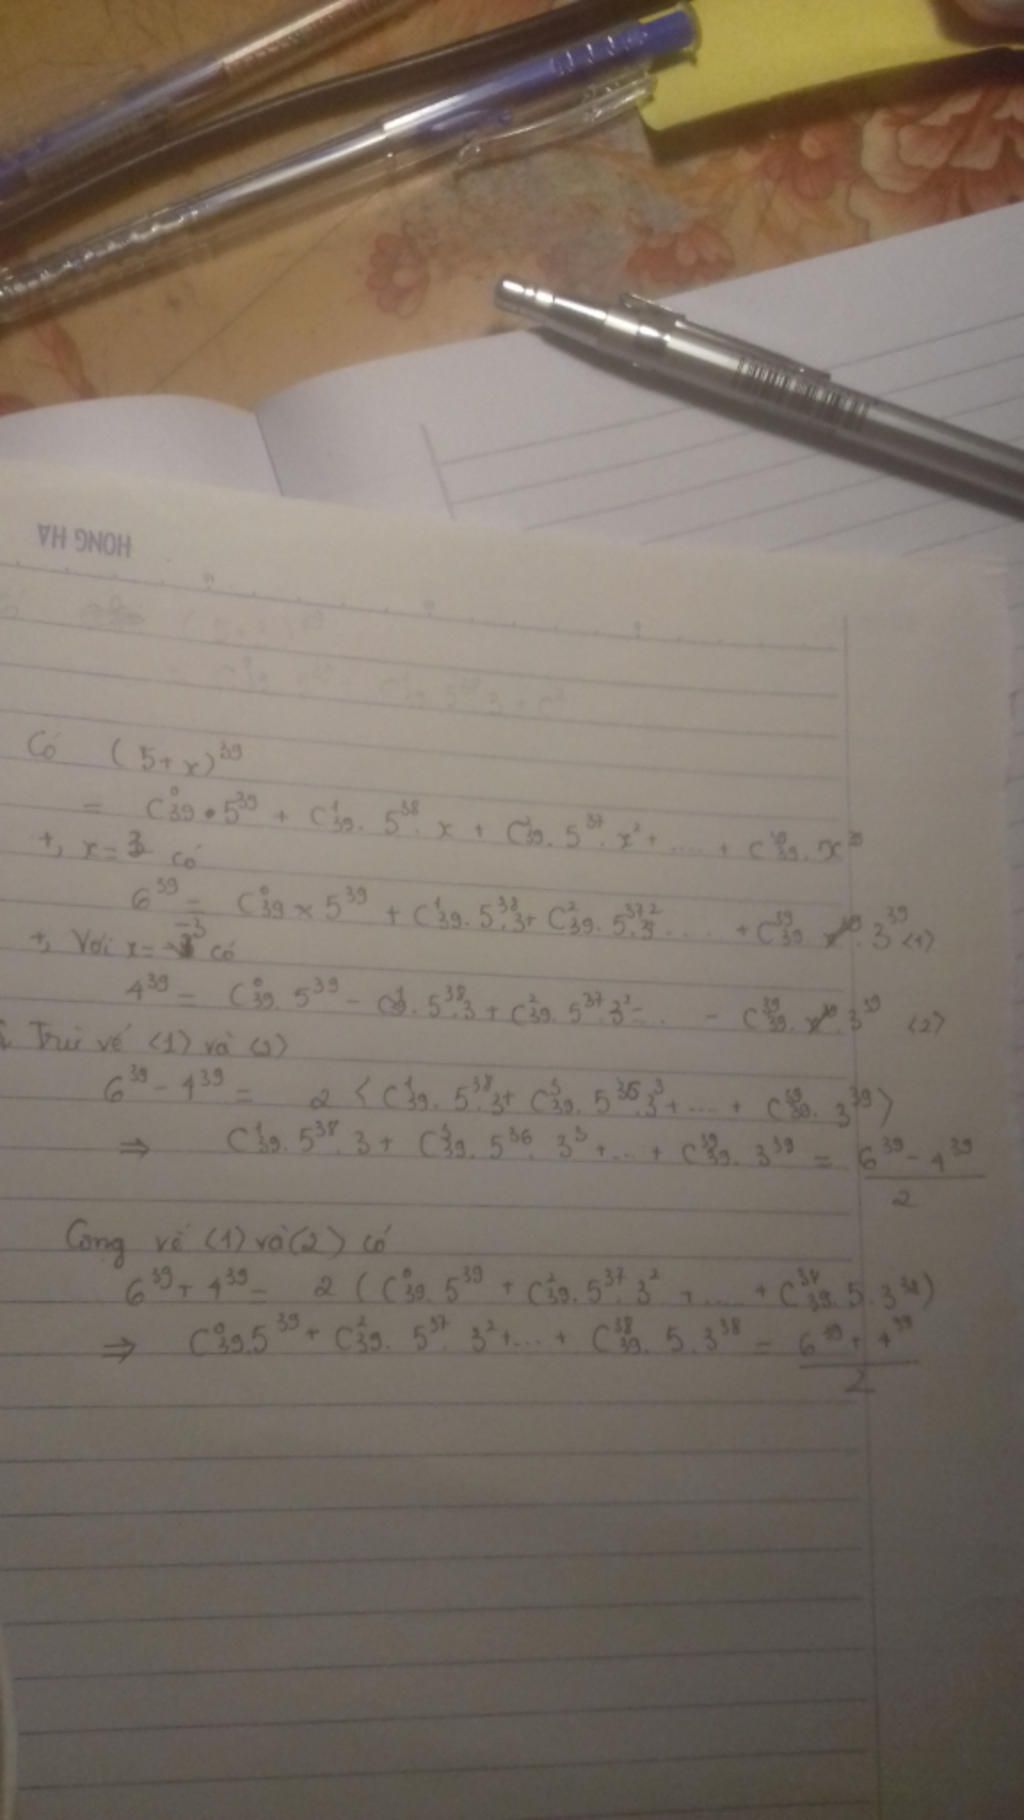 HONG HA
Có (5+x)^39
= C^0_39 . 5^39 + C^1_39 . 5^38 . x + C^2_39 . 5^37 . x^2 + .... + C^39_39 . x^39
+, x = 3 có
6^39 = C^0_39 × 5^39 + C^1_39 . 5^38 . 3 + C^2_39 . 5^37 . 3^2 .... + C^39_39 . 3^39 (1)
+, Với x = -3 có
4^39 = C^0_39 . 5^39 - C^1_39 . 5^38 . 3 + C^2_39 . 5^37 . 3^2 - ... - C^39_39 . 3^39 (2)
Trừ vế (1) và (2)
6^39 - 4^39 = 2 (C^1_39 . 5^38 . 3 + C^3_39 . 5^36 . 3^3 + .... + C^39_39 . 3^39)
⇒ C^1_39 . 5^38 . 3 + C^3_39 . 5^36 . 3^3 + ... + C^39_39 . 3^39 = (6^39 - 4^39)/2
Cong vế (1) và (2) có
6^39 + 4^39 = 2 (C^0_39 . 5^39 + C^2_39 . 5^37 . 3^2 + .... + C^38_39 . 5 . 3^38)
⇒ C^0_39 . 5^39 + C^2_39 . 5^37 . 3^2 + ... + C^38_39 . 5 . 3^38 = (6^39 + 4^39)/2